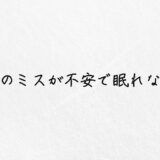 のミスが不安で眠れな